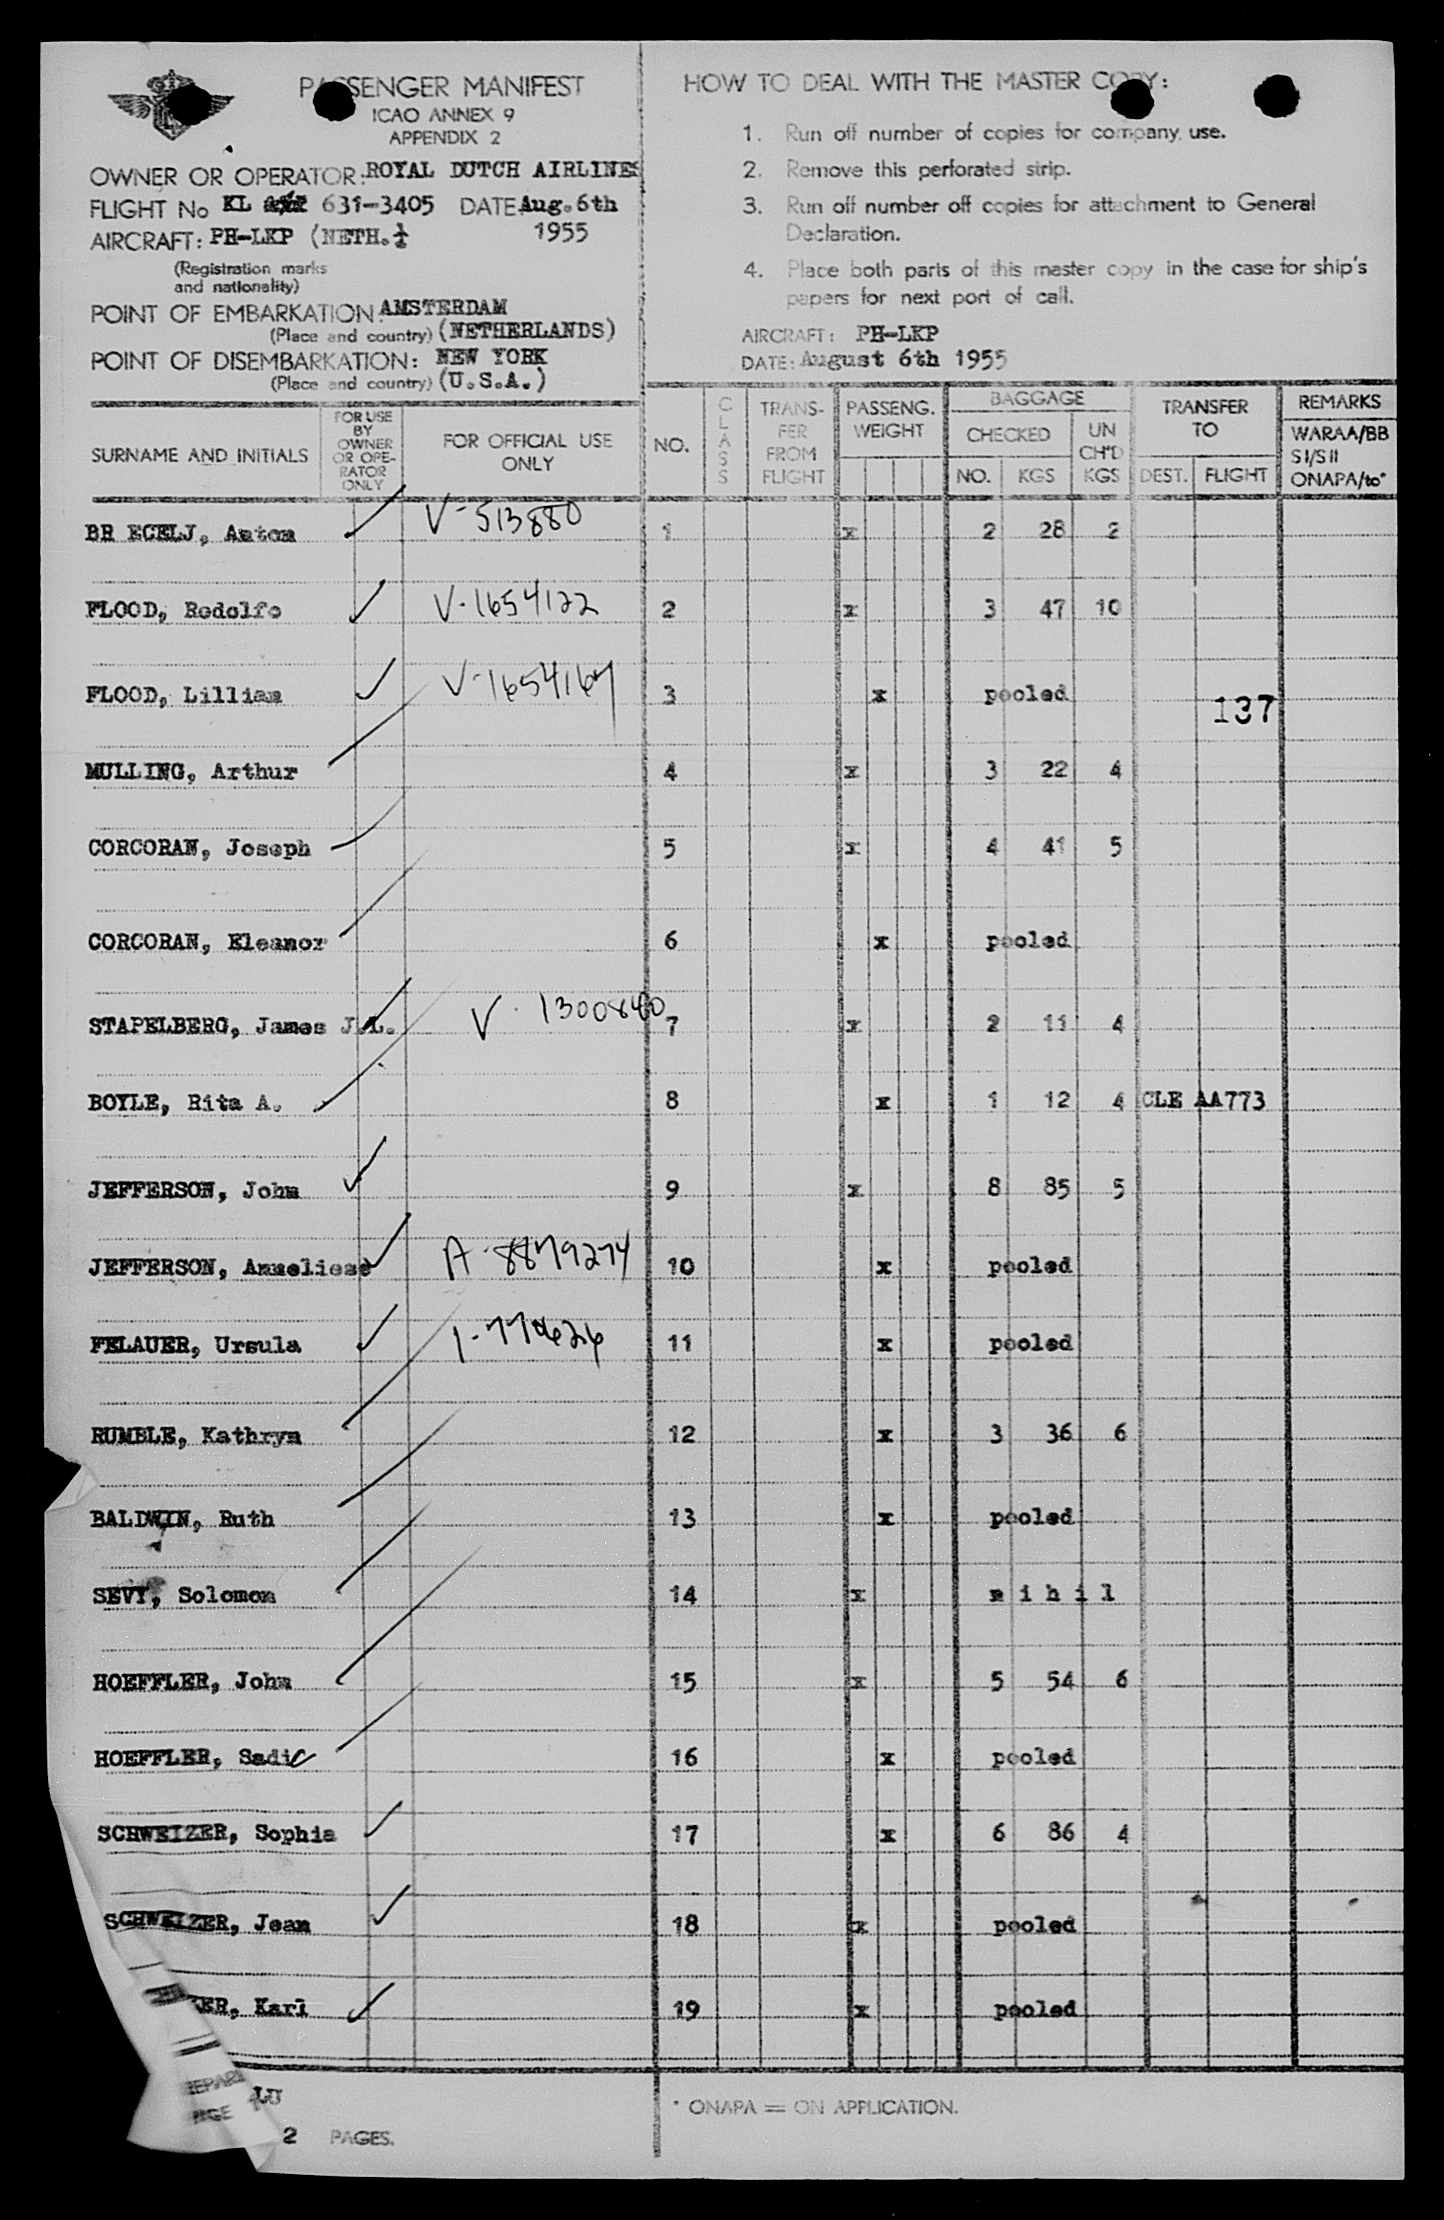 PASSENGER MANIFEST
ICAO ANNEX 9
APPENDIX 2
OWNER OR OPERATOR: ROYAL DUTCH AIRLINES
FLIGHT No KL 631-3405 DATE Aug. 6th
AIRCRAFT: PH-LKP (NETH. 1955
(Registration marks
and nationality)
POINT OF EMBARKATION: AMSTERDAM
(Place and country) (NETHERLANDS)
POINT OF DISEMBARKATION: NEW YORK
(Place and country) (U.S.A.)
HOW TO DEAL WITH THE MASTER COPY:
1. Run off number of copies for company use.
2. Remove this perforated strip.
3. Run off number off copies for attachment to General
Declaration.
4. Place both parts of this master copy in the case for ship's
papers for next port of call.
AIRCRAFT: PH-LKP
DATE: August 6th 1955
SURNAME AND INITIALS FOR USE BY OWNER OR OPE-RATOR ONLY FOR OFFICIAL USE ONLY NO. CLASS TRANS-FER FROM FLIGHT PASSENG. WEIGHT BAGGAGE CHECKED NO. KGS UN CH'D KGS TRANSFER TO DEST. FLIGHT REMARKS WARAA/BB SI/SII ONAPA/to*
BR ECELJ, Anton V-513880 1 x 2 28 2
FLOOD, Rodolfo V-1654122 2 x 3 47 10
FLOOD, Lillian V-1654167 3 x pooled
137
MULLING, Arthur 4 x 3 22 4
CORCORAN, Joseph 5 x 4 41 5
CORCORAN, Eleanor 6 x pooled
STAPELBERG, James J.L. V-1300840 7 x 2 11 4
BOYLE, Rita A. 8 x 1 12 4 CLE AA773
JEFFERSON, John 9 x 8 85 5
JEFFERSON, Anneliese A-8879274 10 x pooled
FELAUER, Ursula 11 x pooled
RUMBLE, Kathryn 12 x 3 36 6
BALDWIN, Ruth 13 x pooled
SEVY, Solomon 14 x n i h i l
HOEFFLER, John 15 x 5 54 6
HOEFFLER, Sadie 16 x pooled
SCHWEIZER, Sophia 17 x 6 86 4
SCHWEIZER, Jean 18 x pooled
KER, Karl 19 x pooled
LU
2 PAGES.
* ONAPA = ON APPLICATION.